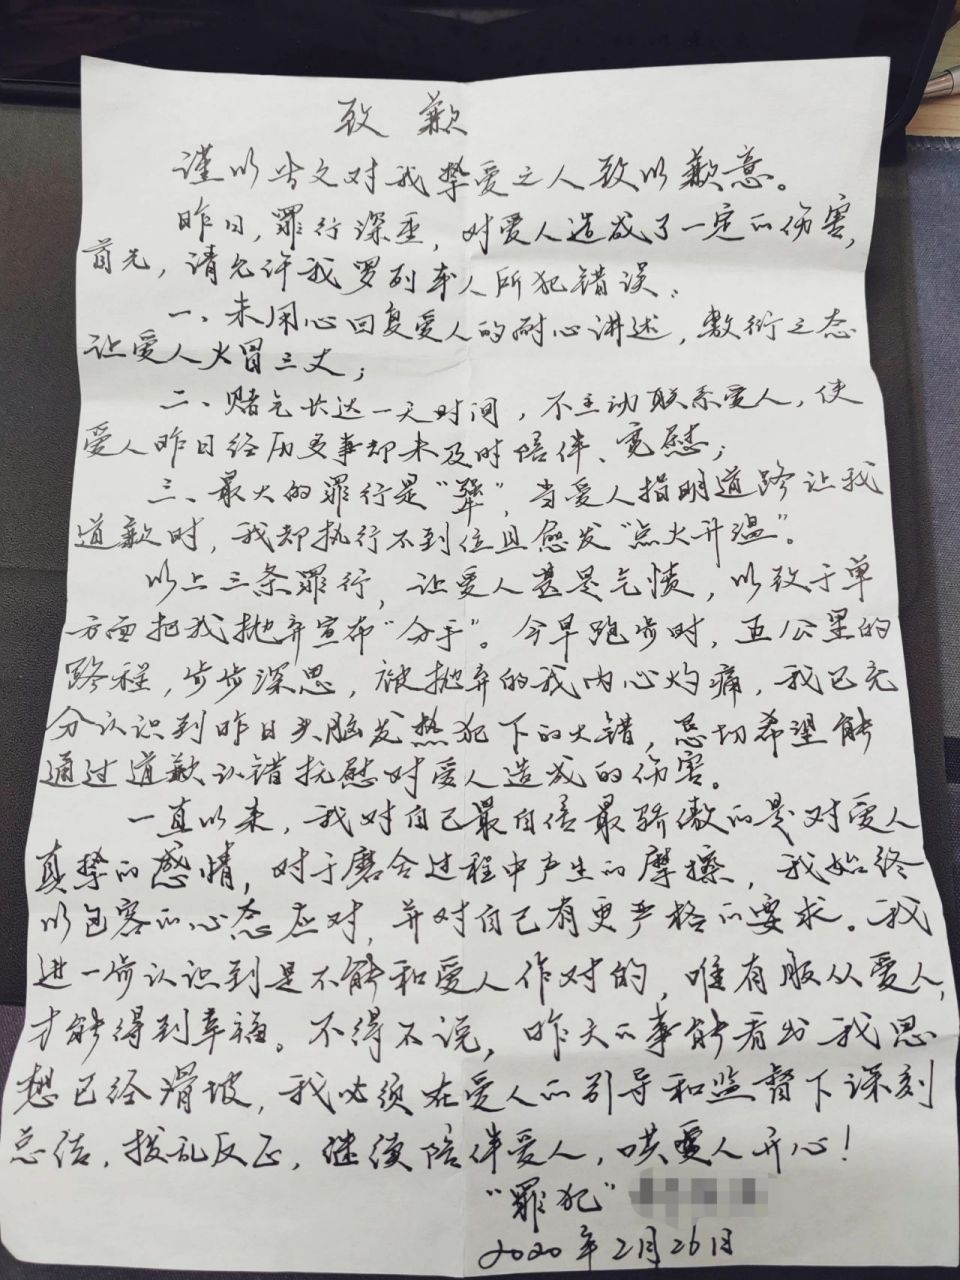 致歉
谨以此文对我挚爱之人致以歉意。
昨日，罪行深重，对爱人造成了一定的伤害，
首先，请允许我罗列本人所犯错误：
一、未用心回复爱人的耐心讲述，敷衍之态
让爱人火冒三丈；
二、赌气长达一天时间，不主动联系爱人，使
爱人昨日经历多事却未及时陪伴、宽慰；
三、最大的罪行是“犟”，当爱人指明道路让我
道歉时，我却执行不到位且愈发“点火升温”。
以上三条罪行，让爱人甚是气愤，以致于单
方面把我抛弃宣布“分手”。今早跑步时，五公里的
路程，步步深思，被抛弃的我内心灼痛，我已充
分认识到昨日头脑发热犯下的大错，恳切希望能
通过道歉认错抚慰对爱人造成的伤害。
一直以来，我对自己最自信最骄傲的是对爱人
真挚的感情，对于磨合过程中产生的摩擦，我始终
以包容的心态应对，并对自己有更严格的要求。我
进一步认识到是不能和爱人作对的，唯有服从爱人，
才能得到幸福。不得不说，昨天的事能看出我思
想已经滑坡，我必须在爱人的引导和监督下深刻
总结，拨乱反正，继续陪伴爱人，哄爱人开心！
“罪犯”
2020年2月26日